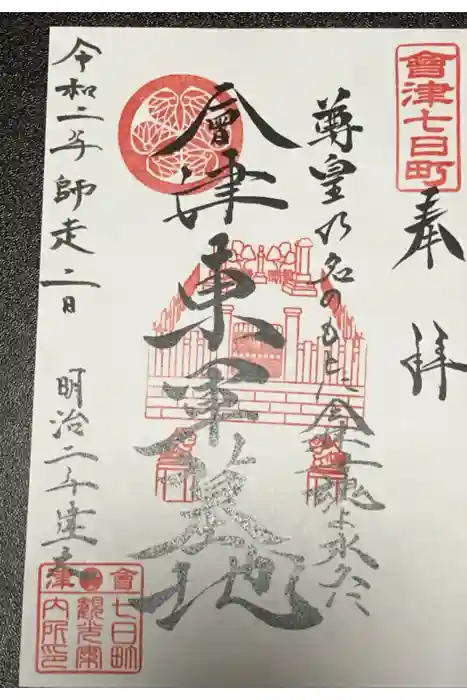 會津七日町
奉拝
尊皇の名のもとに会津士魂よ永久に
會津東軍墓地
令和二年師走二日
明治二年建立
會七日町
観光案
津内所印